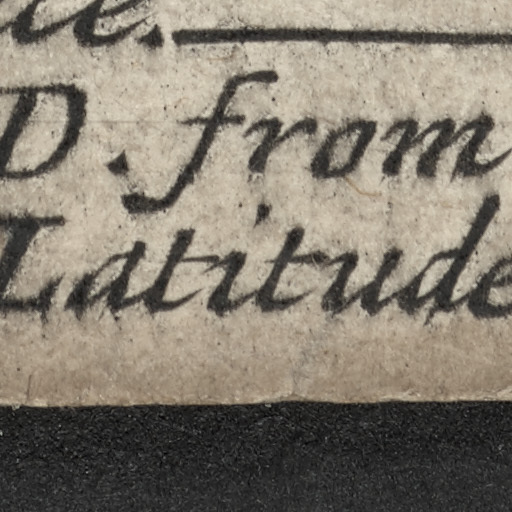 D. from
Latitude